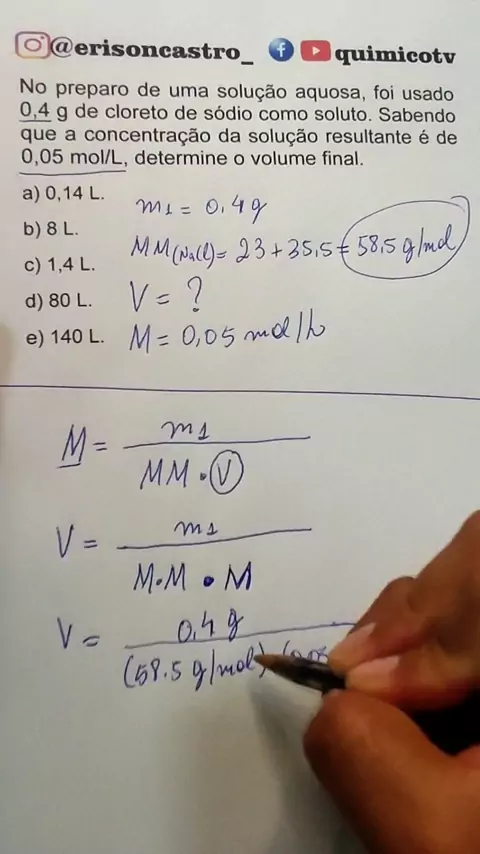 @erisoncastro_ quimicotv
No preparo de uma solução aquosa, foi usado
0,4 g de cloreto de sódio como soluto. Sabendo
que a concentração da solução resultante é de
0,05 mol/L, determine o volume final.
a) 0,14 L.
b) 8 L.
c) 1,4 L.
d) 80 L.
e) 140 L.
m1 = 0,4 g
MM(NaCl) = 23 + 35,5 = 58,5 g/mol
V = ?
M = 0,05 mol/L
M = m1
MM · V
V = m1
M·M · M
V = 0,4 g
(58,5 g/mol)